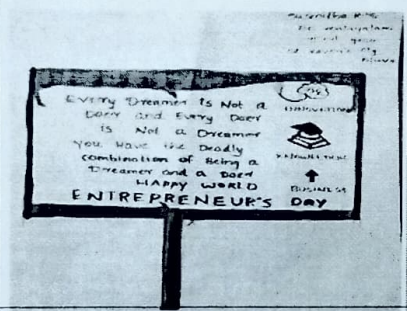 Every Dreamer is Not a
Doer and Every Doer
is Not a Dreamer
You Have the Deadly
combination of Being a
Dreamer and a Doer
HAPPY WORLD
ENTREPRENEUR'S DAY
INNOVATION
BUSINESS